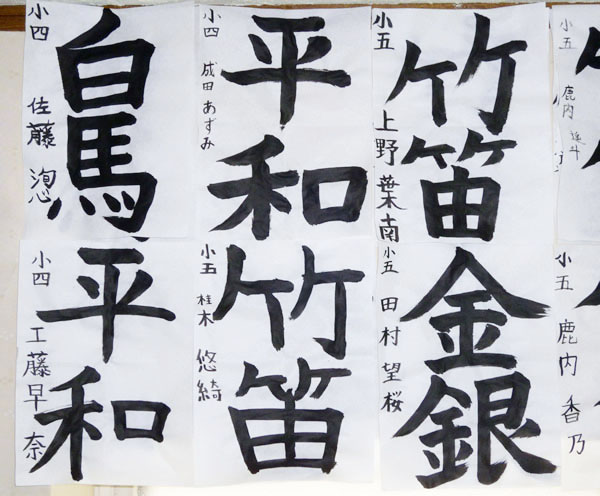 白馬
小四
佐藤
平和
小四
成田あずみ
竹笛
小五
上野葉南
小五
鹿内
平和
小四
工藤早奈
竹笛
小五
桂木悠綺
金銀
小五
田村望桜
小五
鹿内香乃